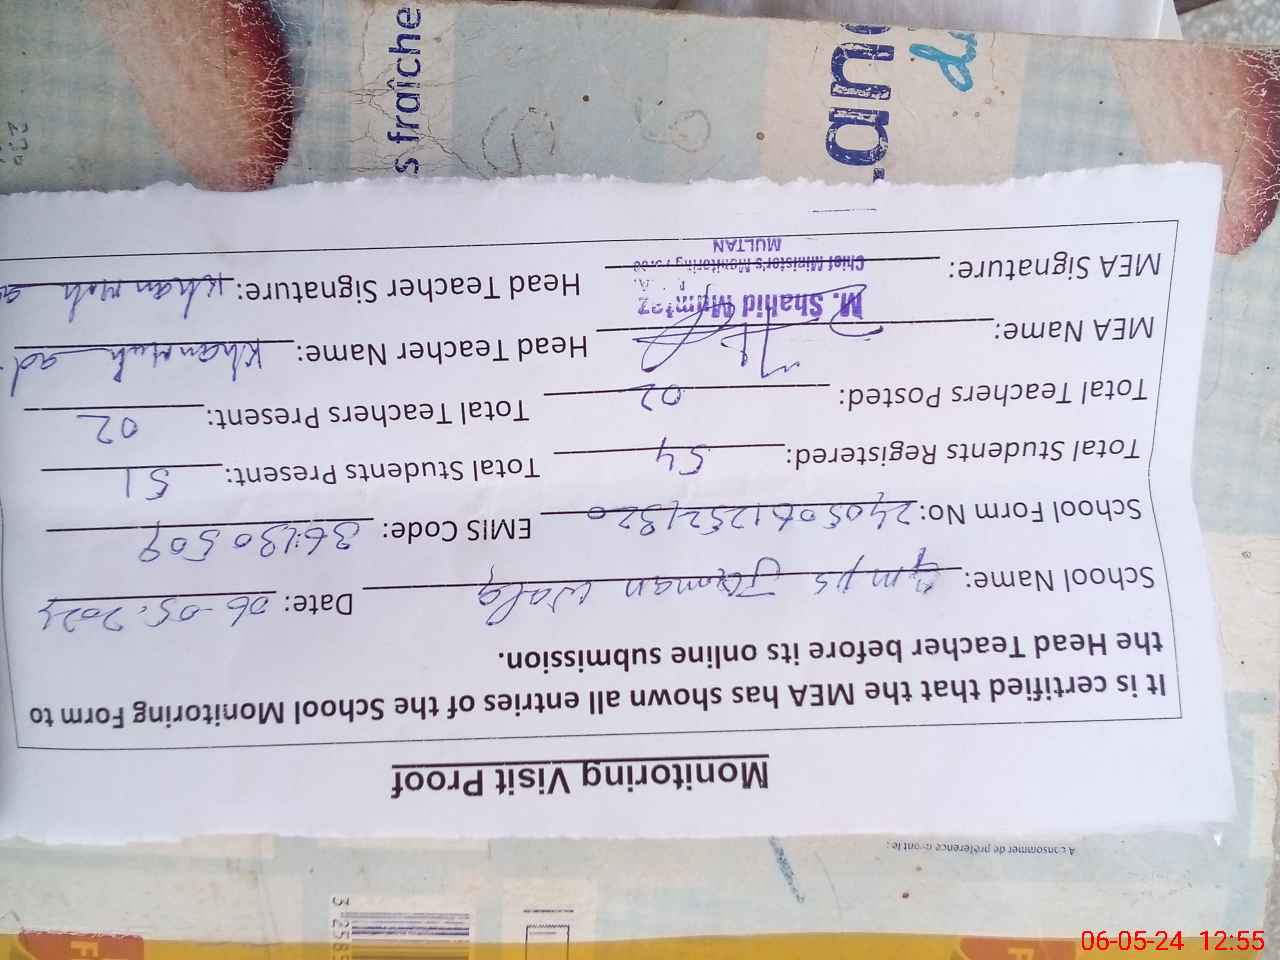 Monitoring Visit Proof
It is certified that the MEA has shown all entries of the School Monitoring Form to
the Head Teacher before its online submission.
School Name: gmps Jaman Wala Date: 06-05-2024
School Form No: EMIS Code: 36130509
Total Students Registered: 54 Total Students Present: 51
Total Teachers Posted: 02 Total Teachers Present: 02
MEA Name: Head Teacher Name: Khan Muh ad
M. Shahid
MEA Signature: Head Teacher Signature: Khan Moh
Chief Minister's Monitoring Force
MULTAN
s fraîche
A consommer de préférence avant le :
06-05-24 12:55